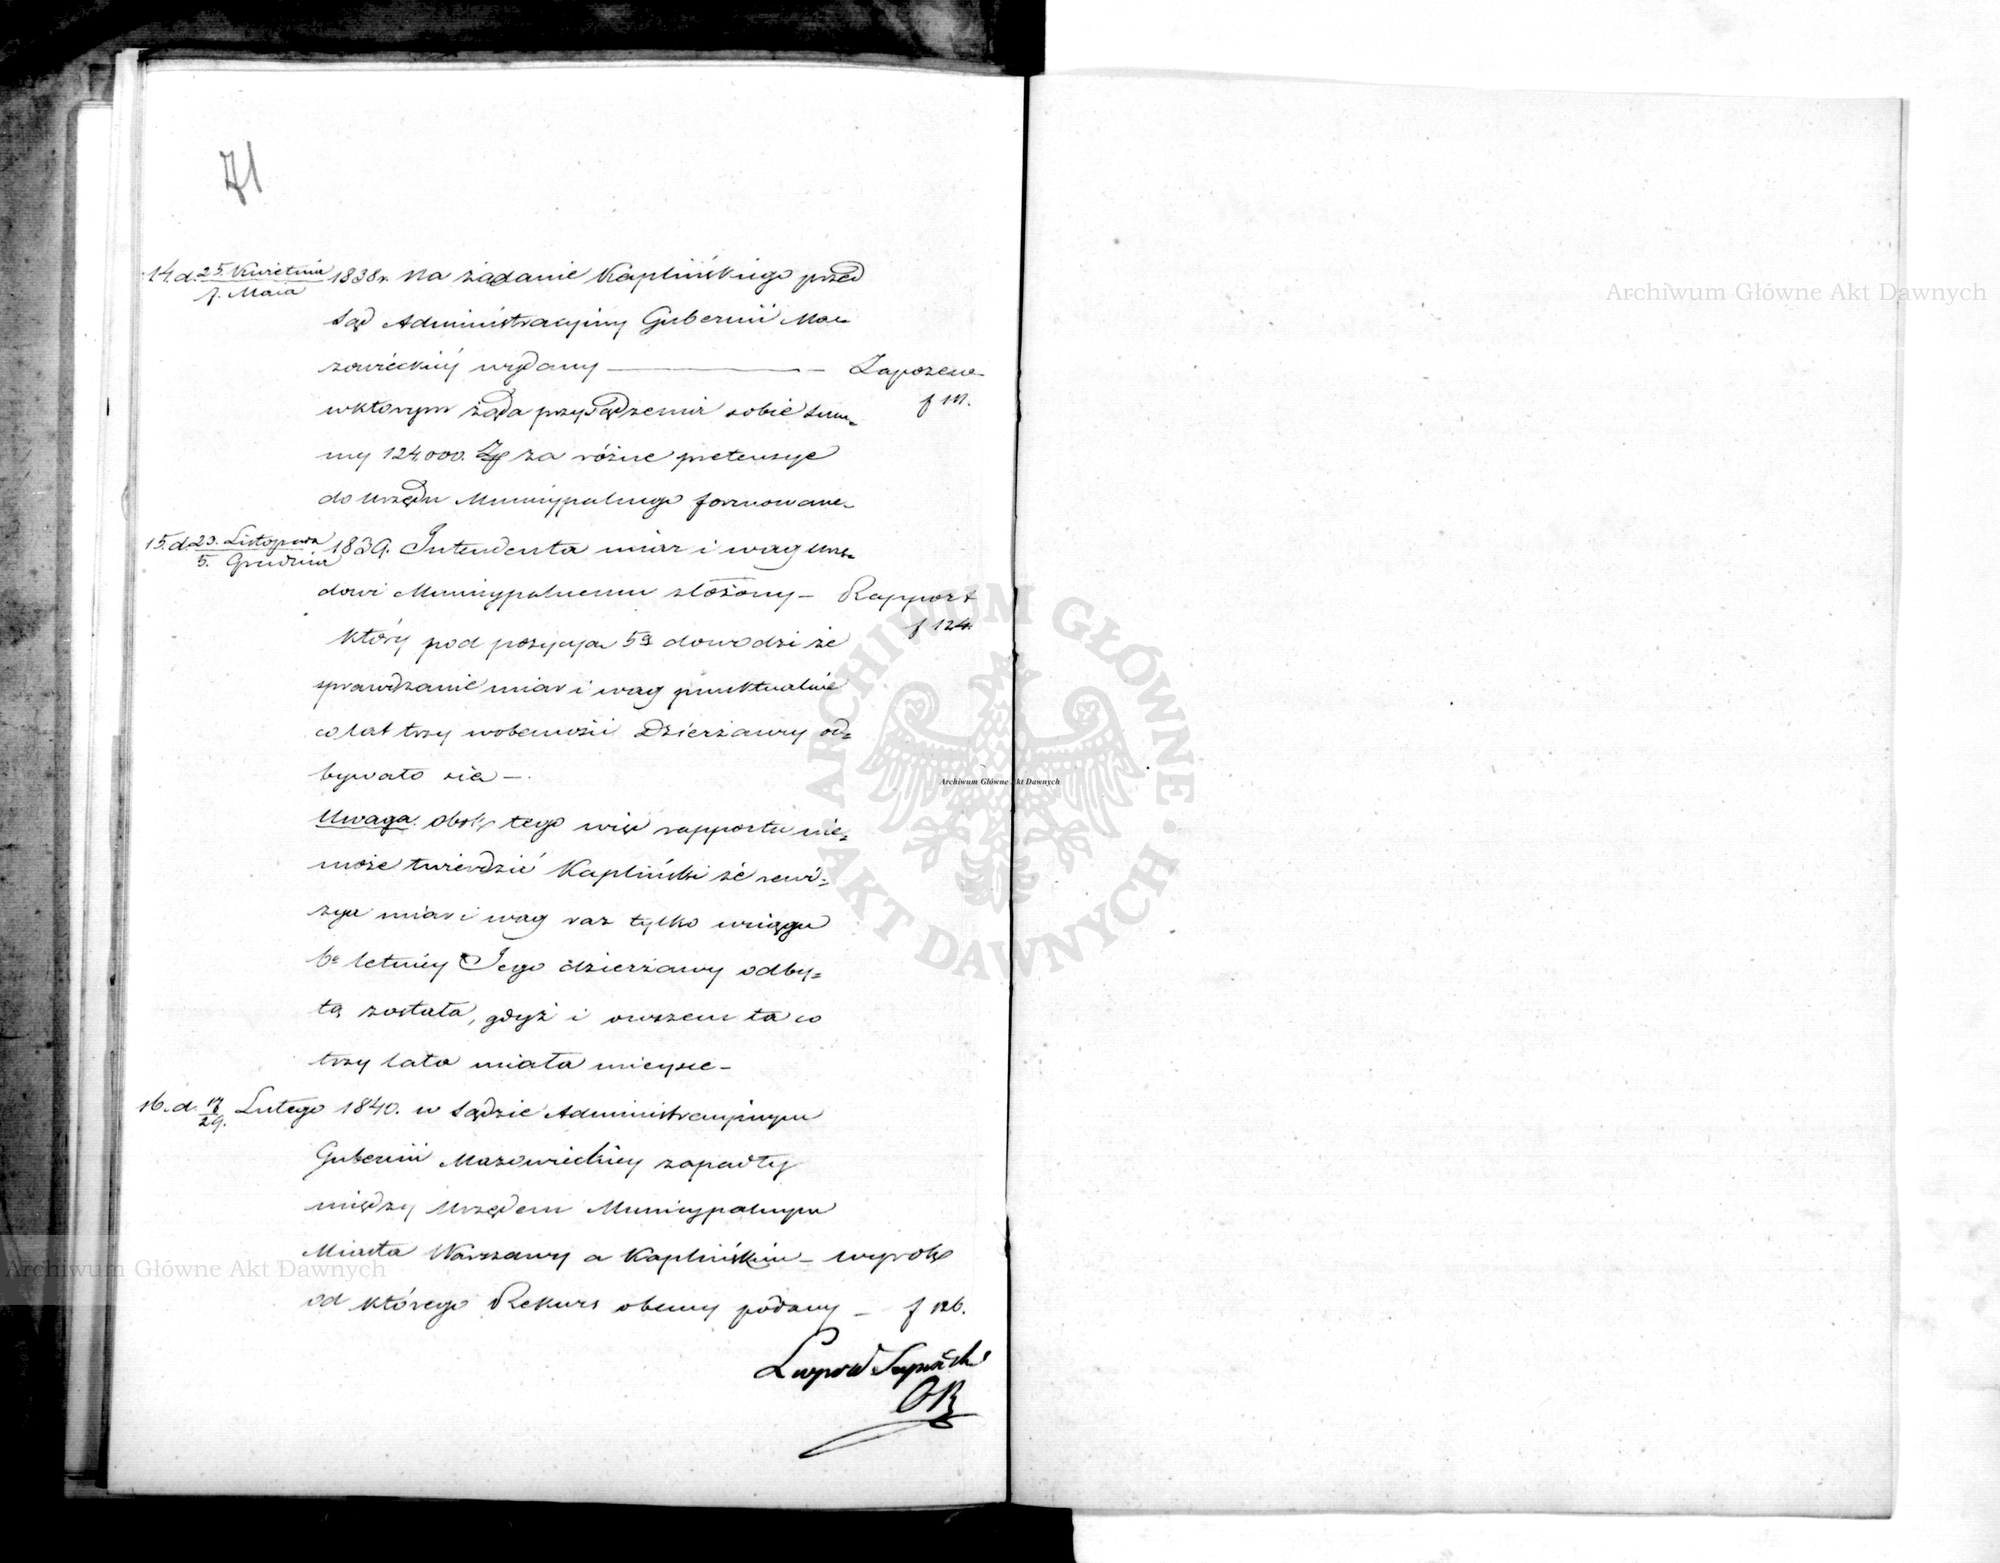 71
14. d. 25. Kwietnia 1838r. Na żądanie Kaplińskiego przed
7. Maia
Sąd Administracyiny Gubernii Ma-
zowieckiéy wydany — Zapozew
w którym żąda przysądzenia sobie Sum- f 111.
my 124,000. Zł za różne pretensye
do Urzędu Municypalnego formowane.
15. d. 23. Listopada 1839. Intendenta miar i wag Urzę-
5. Grudnia
dowi Municypalnemu złożony — Rapport
f 124.
który pod pozycyą 59 dowodzi że
sprawdzanie miar i wag punktualnie
co lat trzy w obecności Dzierżawcy od=
bywało się —.
Uwaga. obok tego więc rapportu nie=
może twierdzić Kapliński że rewi=
zya miar i wag raz tylko w ciągu
6o letniéy Jego dzierżawy odby=
tą została, gdyż i owszem ta co
trzy lata miała mieysce —
16. d. 17 Lutego 1840. w Sądzie Administracyinym
29.
Gubernii Mazowieckiéy zapadły
między Urzędem Municypalnym
Miasta Warszawy a Kaplińskim — wyrok
od którego Rekurs obecny podany — f 126.
OR
Archiwum Główne Akt Dawnych
Archiwum Główne Akt Dawnych
Archiwum Główne Akt Dawnych
ARCHIWUM GŁÓWNE · AKT DAWNYCH ·